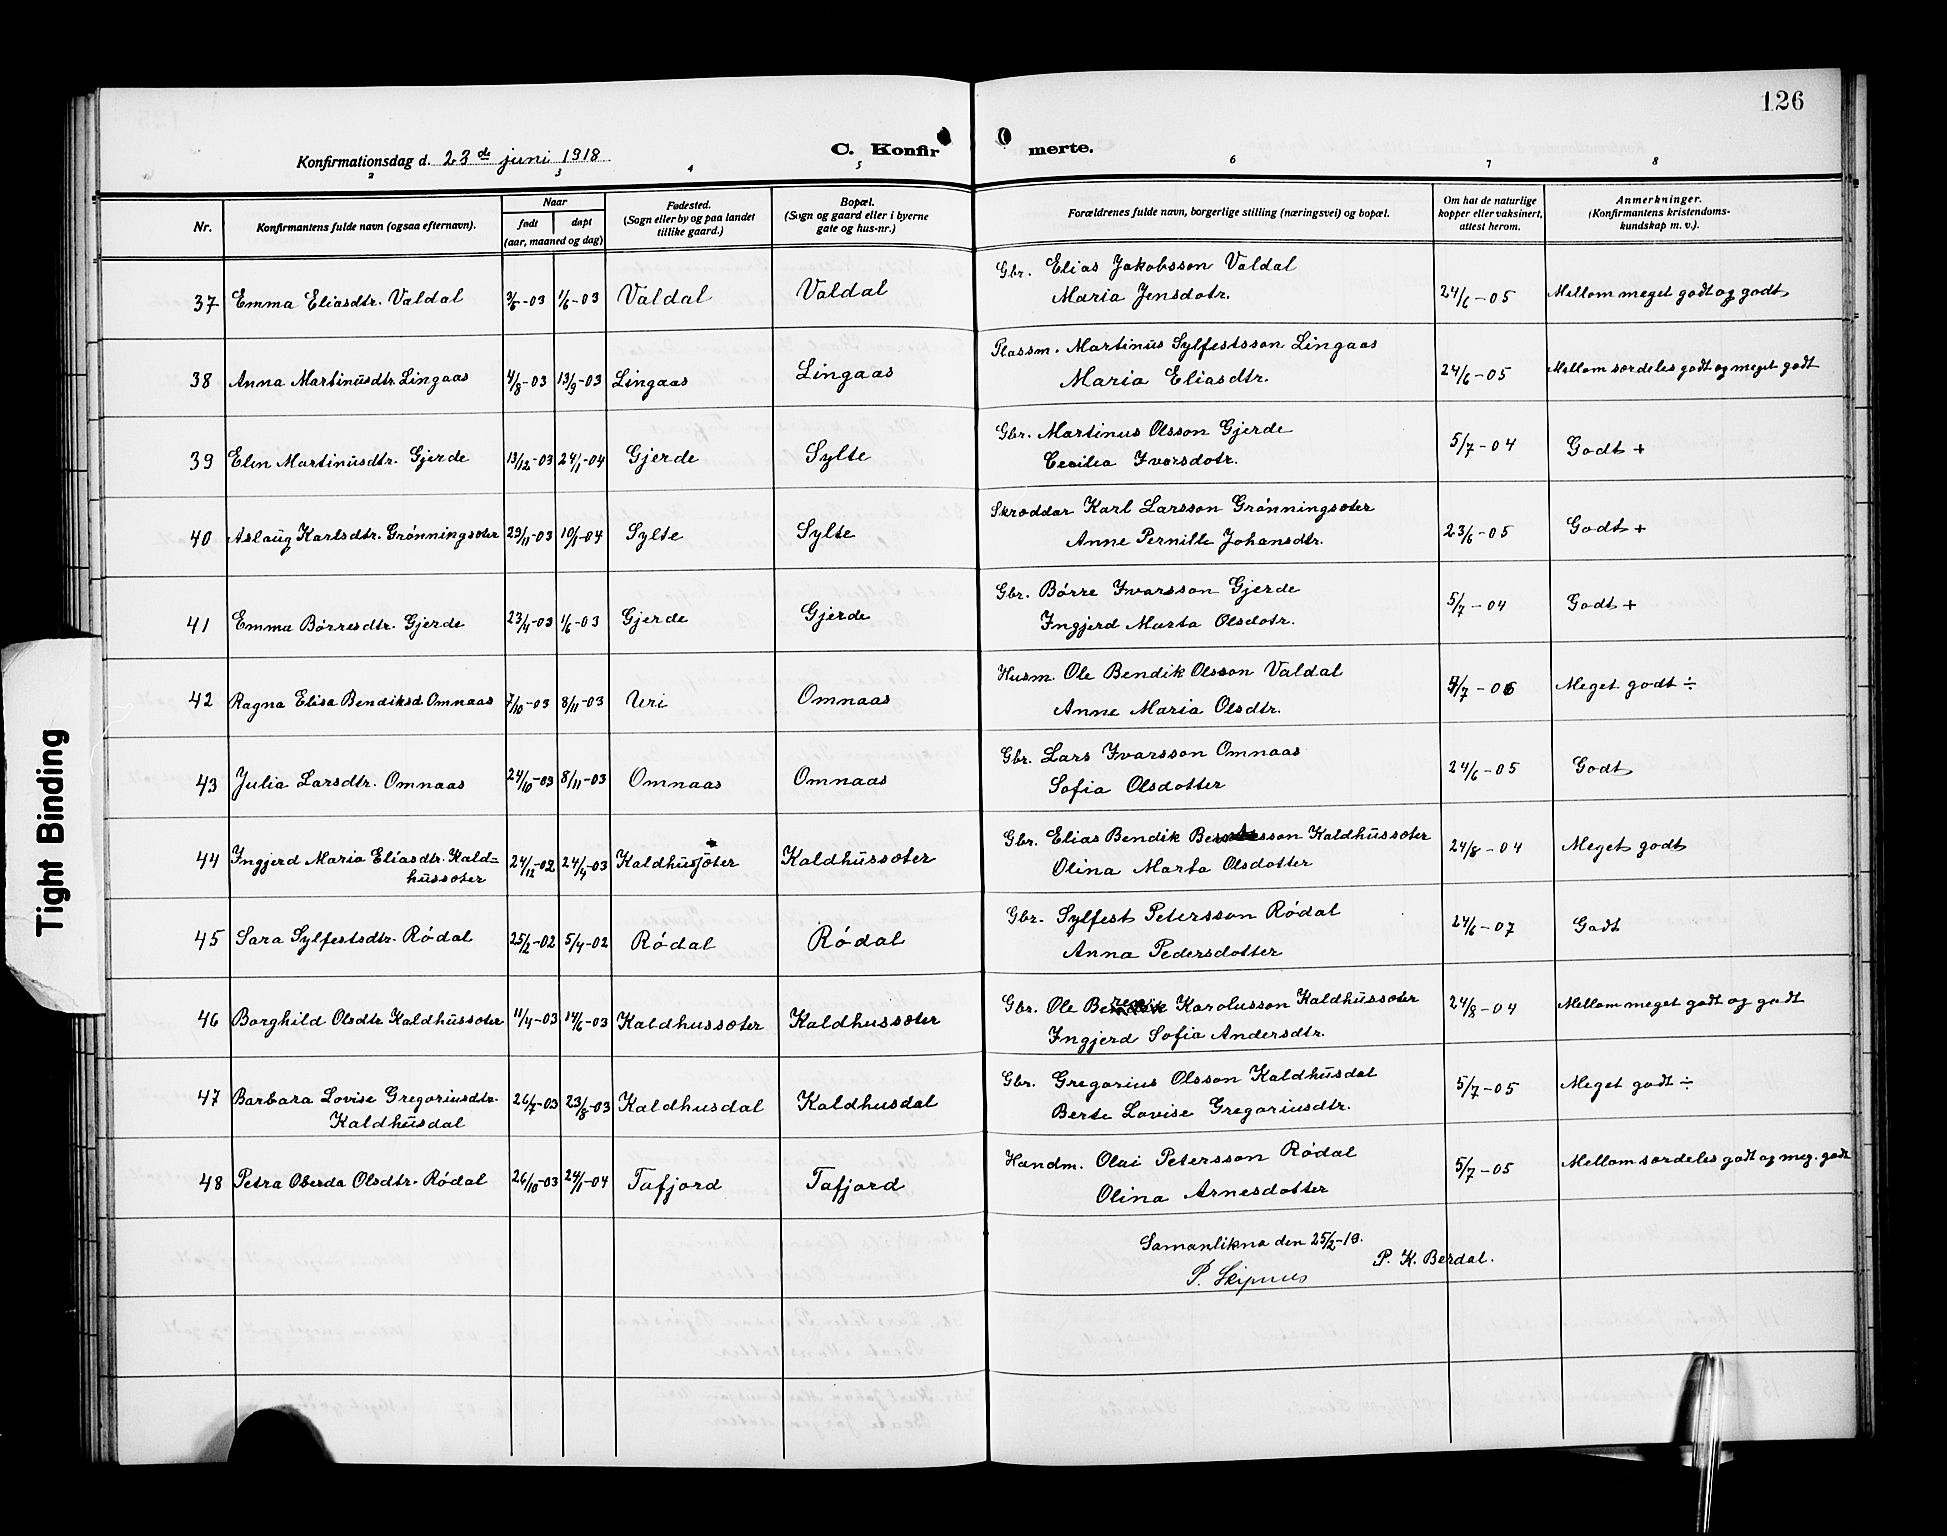 126
Konfirmationsdag d. 23de juni 1918
C. Konfirmerte.
2 3 4 5 6 7 8
Nr.
Konfirmantens fulde navn (ogsaa efternavn).
Naar
født døpt
(aar, maaned og dag)
Fødested.
(Sogn eller by og paa landet
tillike gaard.)
Bopæl.
(Sogn og gaard eller i byerne
gate og hus-nr.)
Forældrenes fulde navn, borgerlige stilling (næringsvei) og bopæl.
Om hat de naturlige
kopper eller vaksinert,
attest herom.
Anmerkninger.
(Konfirmantens kristendoms-
kundskap m. v.).
37 Emma Eliasdtr. Valdal 3/5-03 1/6-03 Valdal Valdal Gbr. Elias Jakobsson Valdal 24/6-05 Mellom meget godt og godt
Maria Jensdotr.
38 Anna Martinusdtr. Lingaas 4/8-03 13/9-03 Lingaas Lingaas Plassm. Martinus Sylfestsson Lingaas 24/6-05 Mellom særdeles godt og meget godt
Maria Eliasdtr.
39 Elen Martinusdtr. Gjerde 13/12-03 24/1-04 Gjerde Sylte Gbr. Martinus Olsson Gjerde 5/7-04 Godt +
Cecilia Ivarsdotr.
40 Aslaug Karlsdtr. Grønningsæter 29/11-03 10/1-04 Sylte Sylte Skræddar Karl Larsson Grønningsæter 23/6-05 Godt +
Anne Pernille Johansdtr.
41 Emma Børresdtr. Gjerde 23/4-03 1/6-03 Gjerde Gjerde Gbr. Børre Ivarsson Gjerde 5/7-04 Godt +
Ingjerd Marta Olsdotr.
42 Ragna Elisa Bendiksd Omnaas 7/10-03 8/11-03 Uri Omnaas Husm. Ole Bendik Olsson Valdal /7-06 Meget godt ÷
Anne Maria Olsdtr.
43 Julia Larsdtr. Omnaas 24/10-03 8/11-03 Omnaas Omnaas Gbr. Lars Ivarsson Omnaas 24/6-05 Godt
Sofia Olsdotter
44 Ingjerd Maria Eliasdtr. Kald= 24/12-02 24/4-03 Kaldhussæter Kaldhussæter Gbr. Elias Bendik Kaldhussæter 24/8-04 Meget godt
hussæter Olina Marta Olsdotter
45 Sara Sylfestsdtr. Rødal 25/2-02 5/4-02 Rødal Rødal Gbr. Sylfest Petersson Rødal 24/6-07 Godt
Anna Pedersdotter
46 Borghild Olsdtr Kaldhussæter 11/4-03 14/6-03 Kaldhussæter Kaldhussæter Gbr. Ole Karolusson Kaldhussæter 24/8-04 Mellom meget godt og godt
Ingjerd Sofia Andersdtr.
47 Barbara Lovise Gregoriusdtr. 26/7-03 23/8-03 Kaldhusdal Kaldhusdal Gbr. Gregorius Olsson Kaldhusdal 5/7-05 Meget godt ÷
Kaldhusdal Berte Lovise Gregoriusdtr.
48 Petra Oberda Olsdtr. Rødal 26/10-03 24/1-04 Tafjord Tafjord Handm. Olai Petersson Rødal 5/7-05 Mellom særdeles godt og meg. godt
Olina Arnesdotter
Samanlikna den 25/2-19.
P. K. Berdal.
Tight Binding